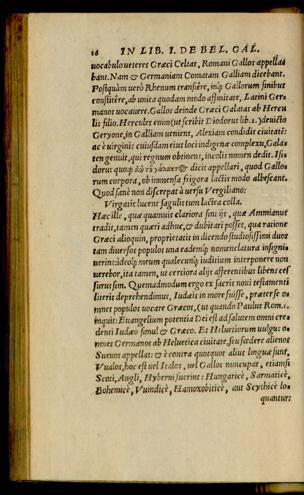 16 IN LIB. I. DE BEL. GAL.
uocabulo ueteres Græci Celtas, Romani Gallos appellabant. Nam & Germaniam Comatam Galliam dicebant.
Postquàm uerò Rhenum transiêre, inq; Gallorum finibus
constitêre, ab unica quodam modo affinitate, Latini Germanos uocauere. Gallos deinde Græci Galatas ab Herculis filio. Hercules enim (ut scribit Diodorus lib. 5. deuicto
Geryone, in Galliam ueniens, Alexiam condidit ciuitatē:
ac è uirginis cuiusdam eius loci indigenæ complexu, Galaten genuit, qui regnum obtinens, incolis nomen dedit. Isidorus quoq; ἀπὸ τȣ͂ γάλακτ⊕ dici appellari, quod Gallorum corpora, ob immensa frigora lactis modo albescant.
Quod sanè non discrepat à uersu Vergiliano:
Virgatis lucent sagulis tum lactea colla.
Hæc ille, quæ quamuis clariora sint ijs, quæ Ammianus
tradit, tamen quæri adhuc, & dubitari posset, qua ratione
Græci alioquin, proprietatis in dicendo studiosissimi duos
tam diuersos populos una eademq; nomenclatura insignierint: ideoq; meum qualecunq; iudicium interponere non
uerebor, ita tamen, ut certiora alijs afferentibus libens cessurus sim. Quemadmodum ergo ex sacris noui testamenti
literis deprehendimus, Iudæis in more fuisse, præter se omnes populos uocare Græcos, (ut quando Paulus Rom. 1.
inquit: Euangelium potentia Dei est ad salutem omni credenti Iudæo simul & Græco. Et Heluetiorum uulgus omnes Germanos ab Heluetica ciuitate, seu fœdere alienos
Sueuos appellat: & è contra quotquot alius linguæ sunt,
Vualos, hoc est uel Italos, uel Gallos nuncupat, etiamsi
Scoti, Angli, Hyberni fuerint: Hungaricè, Sarmaticè,
Bohemicè, Vuindicè, Hamoxobiticè, aut Scythicè loquantur: